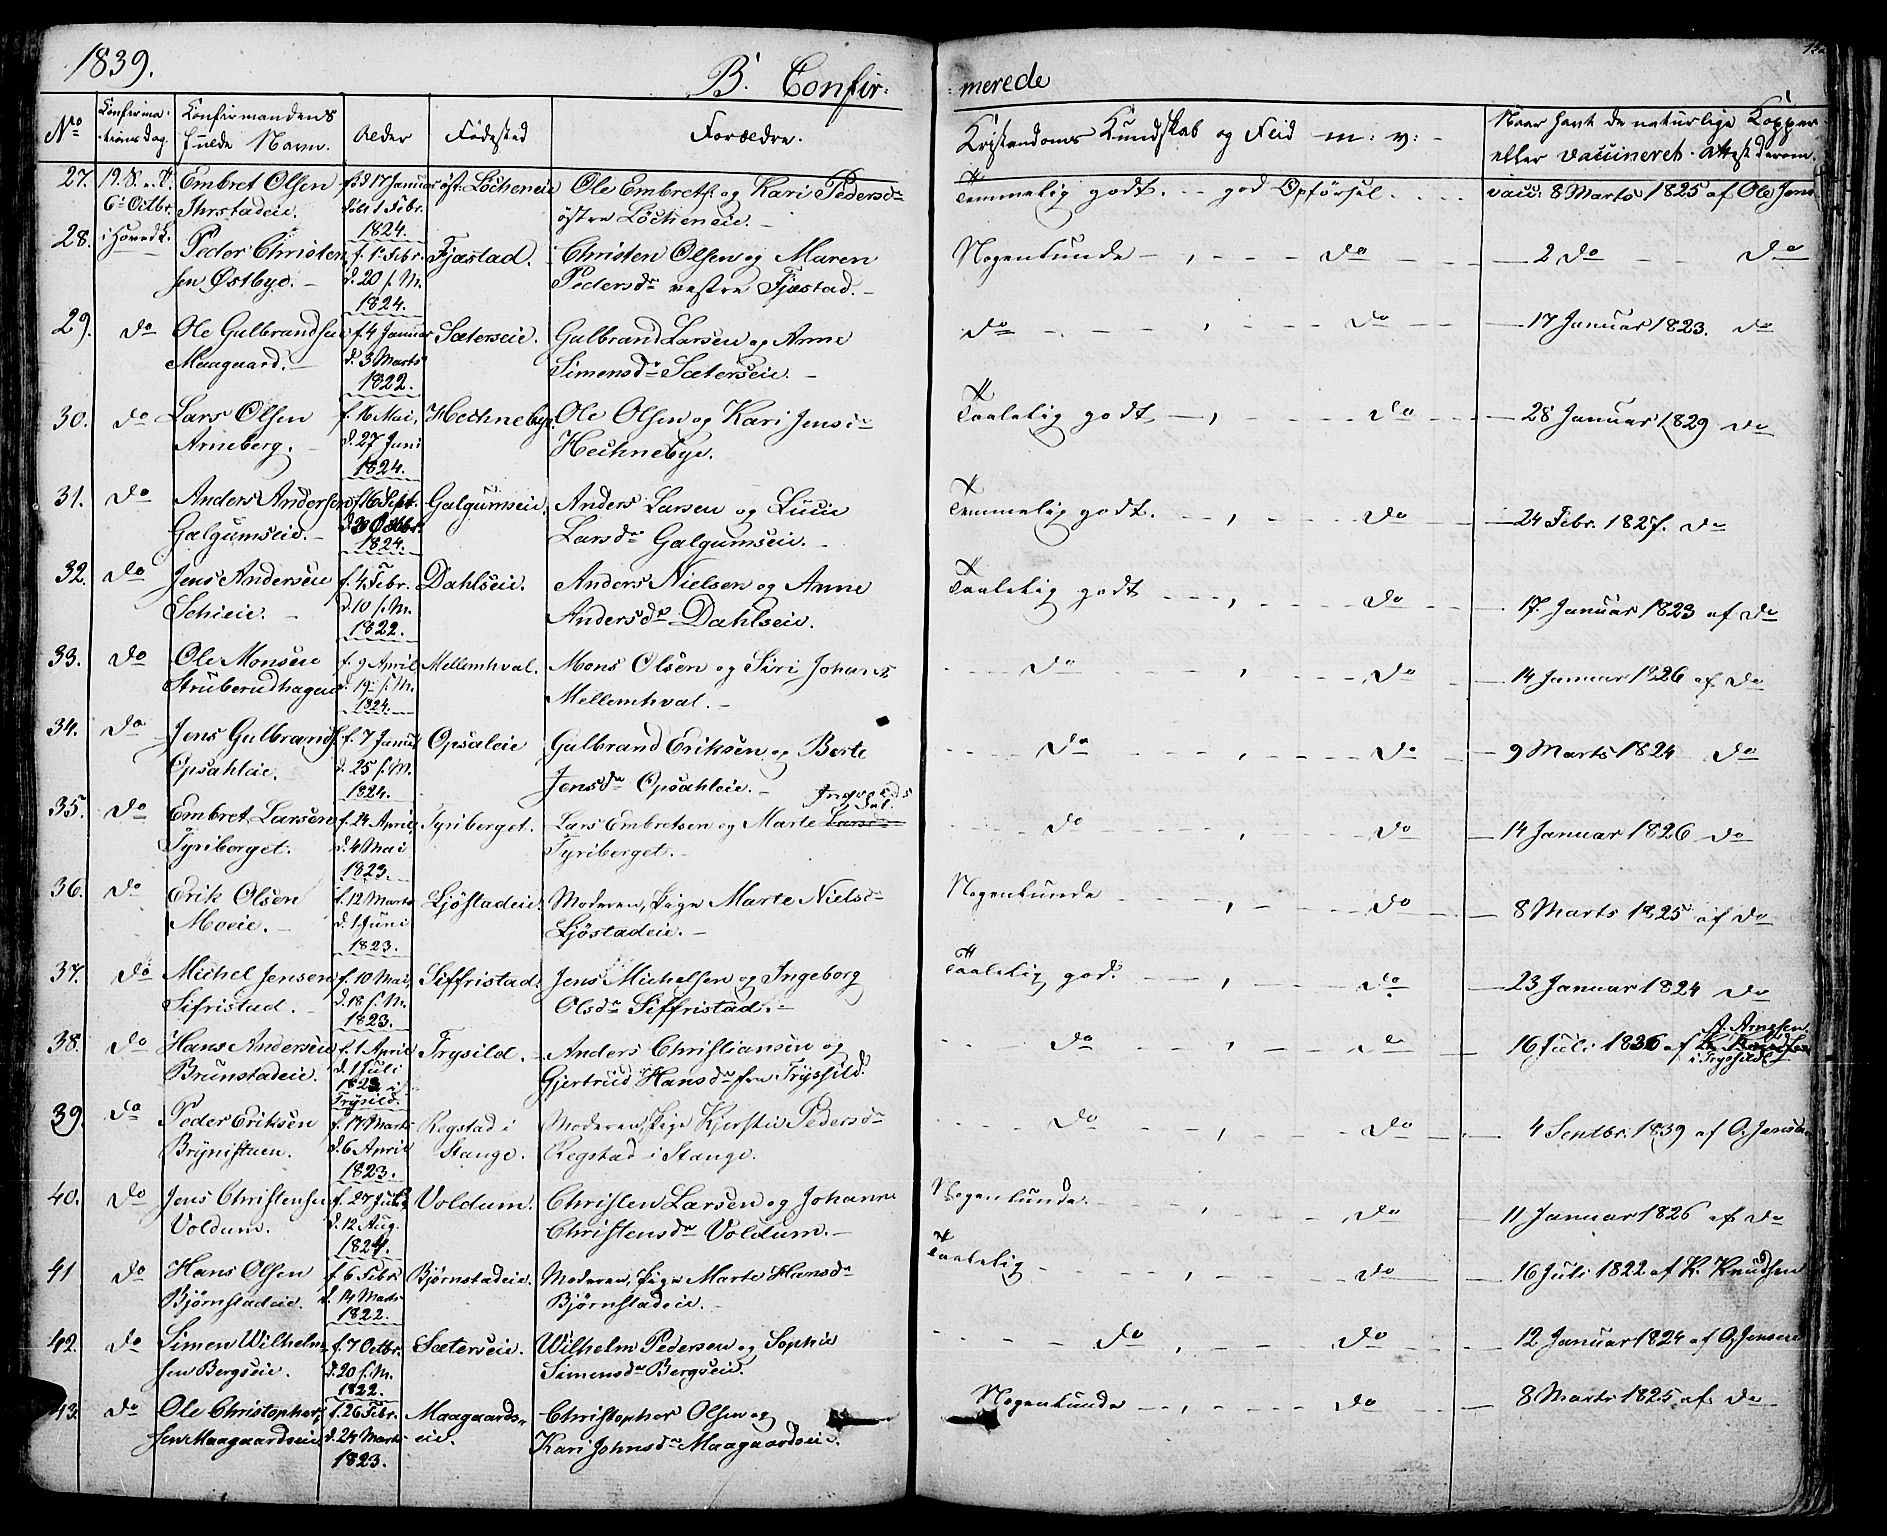 1839.
B. Confir- merede
No
Confirma-
tionsdag.
Confirmandens
fulde Navn.
Alder
Fødested
Forældre.
Kristendoms Kundskab og Flid m: v:
Naar havt de naturlige Kopper
eller vaccineret. Attest derom.
27. 19. S. e. T. Embret Olsen f. d 17 Januar øst. Løcheneie Ole Embrets. og Kari Pedersdr Temmelig godt. god Opførsel. vacc. 8 Marts 1825 af Ole Jens
6te Octbr. døbt 1 Febr. østre Løcheneie.
1824.
28. i Hovedk. Peder Christen f. 1 Febr. Fjæstad. Christen Olsen og Maren Nogenlunde do 2 do do
sen Østbye. d. 20 s. M. Pedersdr vestre Fjæstad.
1824.
29. do Ole Gulbrandsen f. 4 Januar Sæterseie. Gulbrand Larsen og Anne do do 17 Januar 1823. do
Maagaard. d. 3 Marts Simensdr Sæterseie.
1822.
30. do Lars Olsen f. 16 Mai, Hechnebye. Ole Olsen og Kari Jensdr Taalelig godt do 28 Januar 1829 do
Arneberg. d. 27 Juni Hechnebye.
1824.
31. do Anders Andersen f. 16 Sept. Galgumseie. Anders Larsen og Lucie Temmelig godt. do 24 Febr. 1827. do
Galgumseie. Larsdr Galgumseie.
1824.
32. do Jens Andersen f. 4 Febr. Dahlseie. Anders Nielsen og Anne Taalelig godt do 17 Januar 1823 af do
Schieie. d. 10 s. M. Andersdr Dahlseie.
1822.
33. do Ole Monsen f. 9 April Mellemhval. Mons Olsen og Siri Johans do do 14 Januar 1826 af do
Struberudhagen d. 19 s. M. Mellemhval.
1824.
34. do Jens Gulbrands f. 7 Januar Opsaleie Gulbrand Eriksen og Berte do do 9 Marts 1824 do
Opsahleie. d. 25 s. M. Jensdr Opsahleie.
1824.
35. do Embret Larsen f. 24 April, Tyriberget. Lars Embretsen og Marte Larsdr do do 14 Januar 1826 do
Tyriberget. d. 4 Mai Tyriberget.
1823.
36. do Erik Olsen f. 12 Marts Ljøstadeie. Moderen, Pige Marte Nielsdr Nogenlunde do 8 Marts 1825 af do
Moeie. d. 1 Juni Ljøstadeie.
1823.
37. do Michel Jensen f. 10 Mai, Siffristad. Jens Michelsen og Ingeborg Taalelig god. do 23 Januar 1824 do
Sifristad. d. 18 s. M. Olsdr Siffristad.
1823.
38. do Hans Andersen f. 1 April Trysild. Anders Christiansen og do do 16 Juli 1836 af A. Arnesen
Brunstadeie. d. 1 Juli Gjertrud Hansdr fra Tryssild. i Tryssild
1823 i
Trysild.
39. do Peder Eriksen f. 17 Marts Regstad i Moderen, Pige Kjerstie Pedersdr do do 4 Sentbr. 1839 af O. Jensen
Brynistuen. d. 6 April Stange. Regstad i Stange.
1823.
40. do Jens Christensen f. 27 Juli Voldum. Christen Larsen og Johanne Nogenlunde. do 11 Januar 1826 af do
Voldum. d. 12 Aug. Christensdr Voldum.
1824.
41 do Hans Olsen f. 6 Febr. Bjørnstadeie. Moderen, Pige Marte Hansdr Taalelig do 16 Juli 1822 af K. Knudsen
Bjørnstadeie. d. 14 Marts Bjørnstadeie.
1822.
42. do Simen Wilhelm f. 7 Octbr. Sæterseie. Wilhelm Pedersen og Sophie do do 12 Januar 1824 af O. Jensen
sen Bergseie. d. 20 s. M. Simensdr Bergseie.
1822.
43. do Ole Christopher f. 26 Febr. Maagaards- Christopher Olsen og Nogenlunde do 8 Marts 1825 af do
sen Maagaardseie d. 24 Marts eie. Kari Johnsdr Maagaardseie.
1823.